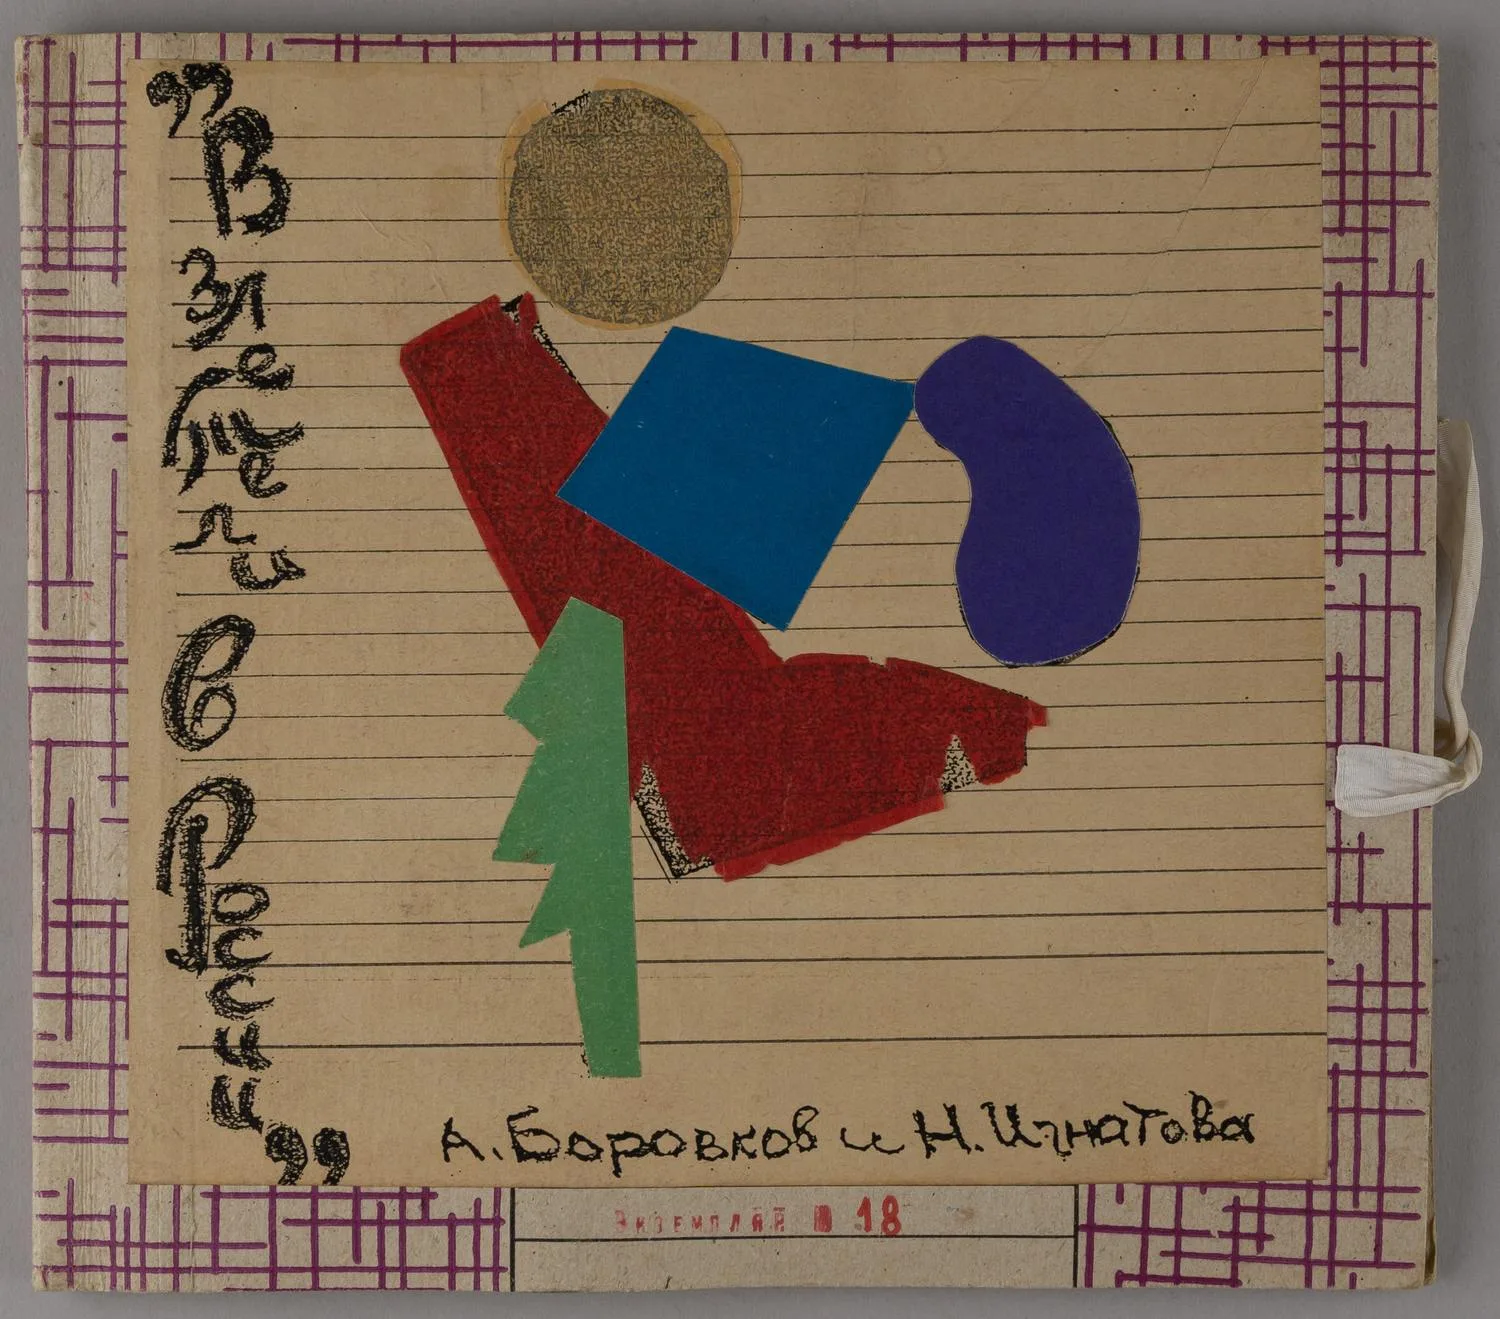 „Взлетели в России”
А. Боровков и Н. Игнатова
ЭКЗЕМПЛЯР № 18